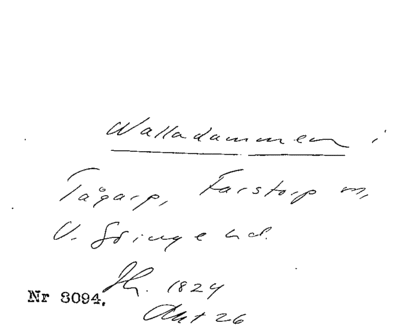 Walladammen i
Tågarp, Farstorp m,
V. Göinge hd.
Jh. 1824
Akt 26
Nr 8094.